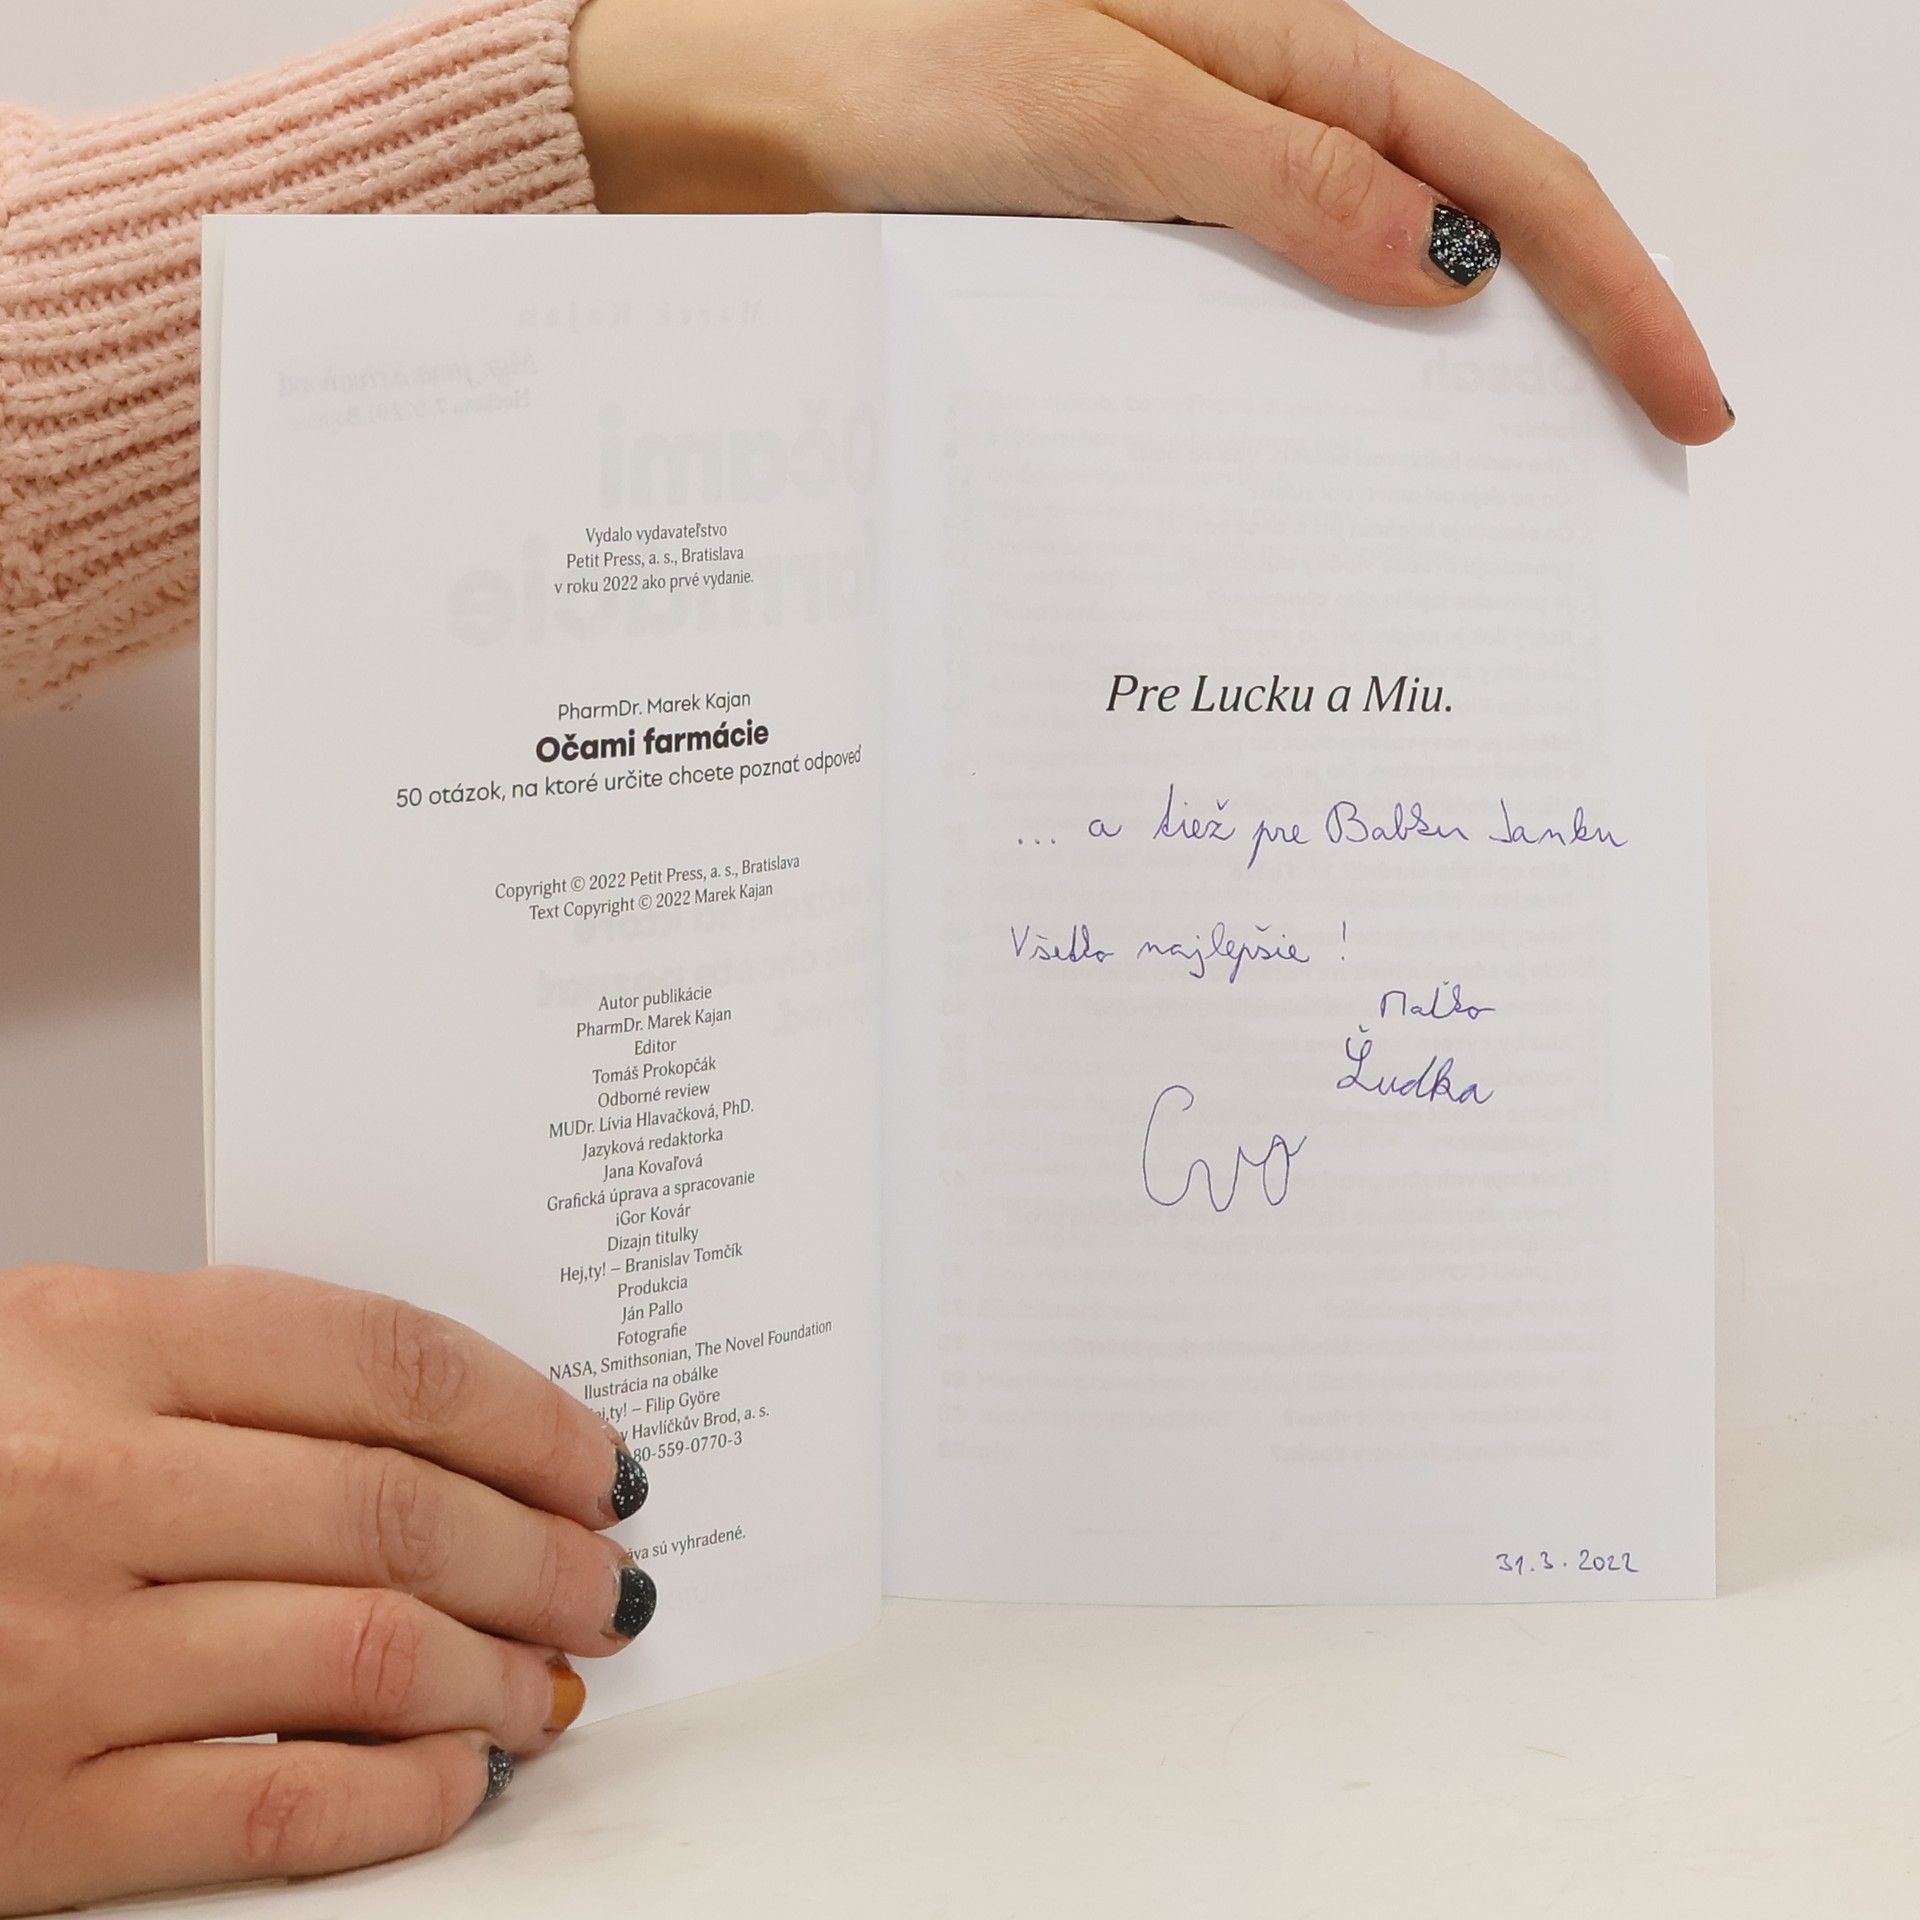 Vydalo vydavateľstvo
Petit Press, a. s., Bratislava
v roku 2022 ako prvé vydanie.
PharmDr. Marek Kajan
Očami farmácie
50 otázok, na ktoré určite chcete poznať odpoveď
Copyright © 2022 Petit Press, a. s., Bratislava
Text Copyright © 2022 Marek Kajan
Autor publikácie
PharmDr. Marek Kajan
Editor
Tomáš Prokopčák
Odborné review
MUDr. Lívia Hlavačková, PhD.
Jazyková redaktorka
Jana Kovaľová
Grafická úprava a spracovanie
iGor Kovár
Dizajn titulky
Hej,ty! – Branislav Tomčík
Produkcia
Ján Pallo
Fotografie
NASA, Smithsonian, The Novel Foundation
Ilustrácia na obálke
ty! – Filip Györe
Havlíčkův Brod, a. s.
80-559-0770-3
sú vyhradené.
Pre Lucku a Miu.
... a tiež pre Babku Janku
Všetko najlepšie !
Maťko
Ľudka
31.3.2022